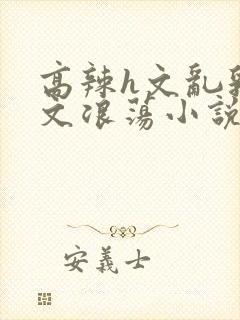 高辣h文亂
文浪蕩小說
安義士